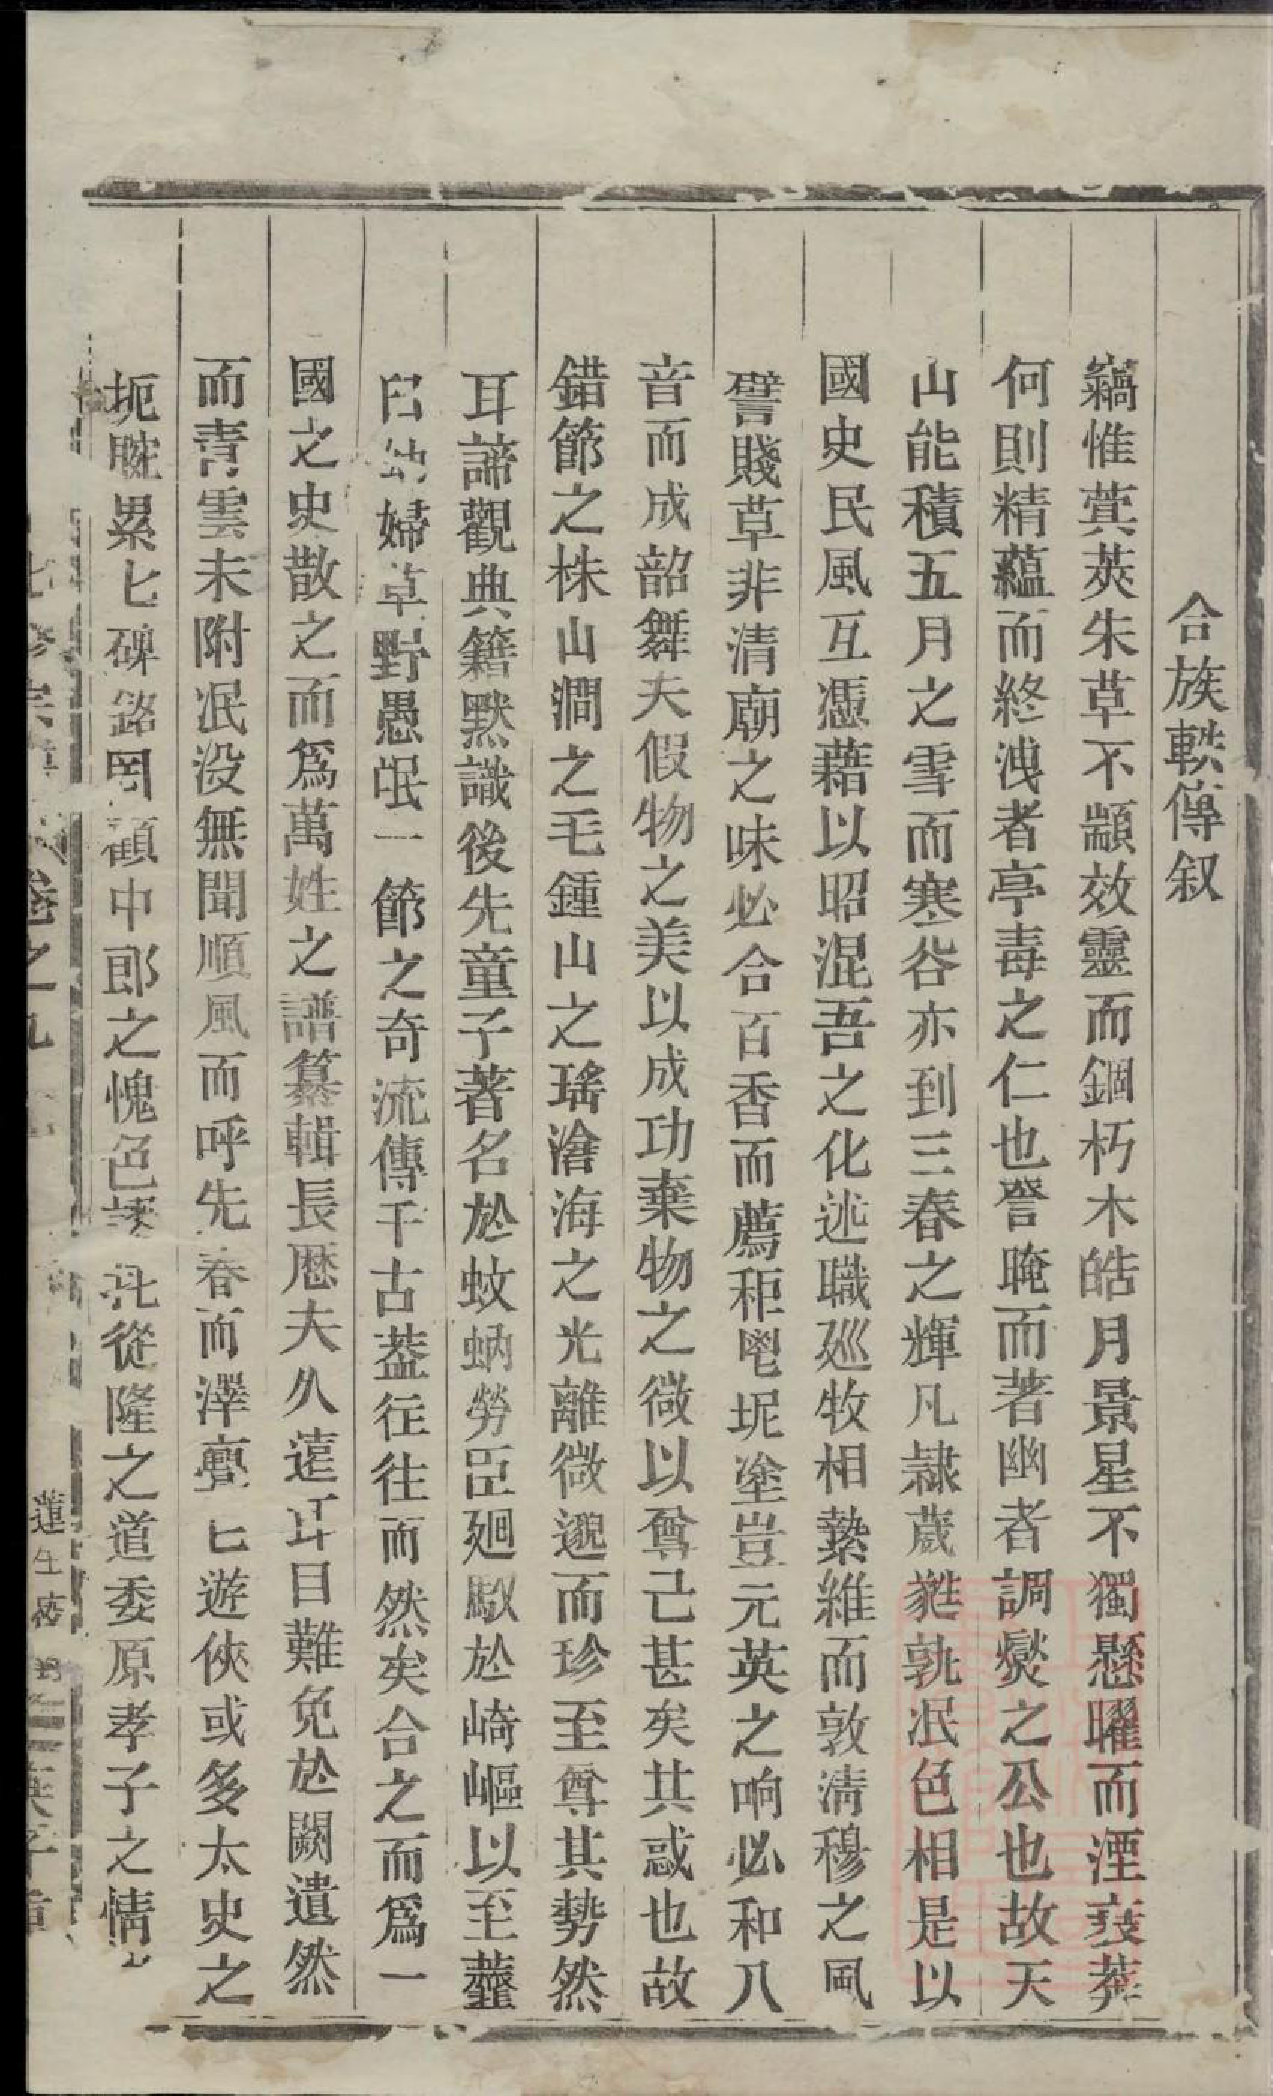 合族軼傳叙
竊惟蓂莢朱草不顓效靈而錮朽木皓月景星不獨懸曜而湮荄莽
何則精蘊而終洩者亭毒之仁也詧晻而著幽者調爕之公也故天
山能積五月之雪而寒谷亦到三春之輝凡隷葴甤孰泯色相是以
國史民風互憑藉以昭混吾之化述職廵牧相縶維而敦淸穆之風
譬賤草非清廟之味必合百香而薦秬鬯坭塗豈元英之响必和八
音而成韶舞夫假物之美以成功棄物之微以尊己甚矣其惑也故
錯節之株山澗之毛鍾山之瑤滄海之光離微邈而珍至尊其勢然
耳諦觀典籍默識後先童子著名於蚊蚋勞臣廻馭於崎嶇以至虀
臼幼婦草野愚氓一節之奇流傳千古葢徃往而然矣合之而爲一
國之史散之而爲萬姓之譜纂輯長歴夫久遠耳目難免於闕遺然
而青雲未附泯没無聞順風而呼先春而澤亹匕遊俠或多太史之
扼腕累匕碑銘罔顧中郎之愧色 從隆之道委原孝子之情
卷之九